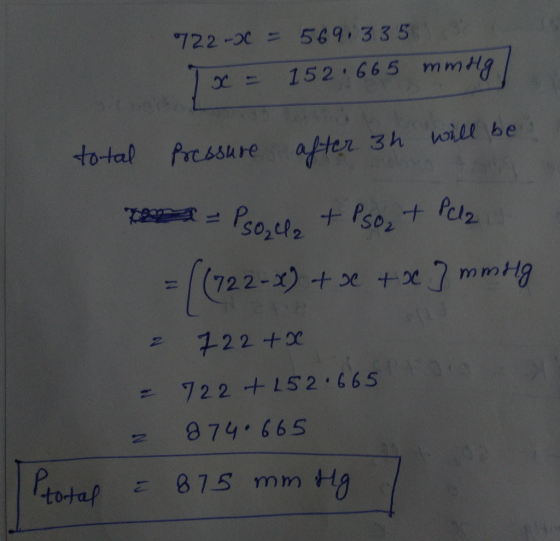 722-x = 569.335
x = 152.665 mmHg
total Pressure after 3h will be
= P_SO2Cl2 + P_SO2 + P_Cl2
= [(722-x) + x + x] mmHg
= 722 + x
= 722 + 152.665
= 874.665
P_total = 875 mm Hg